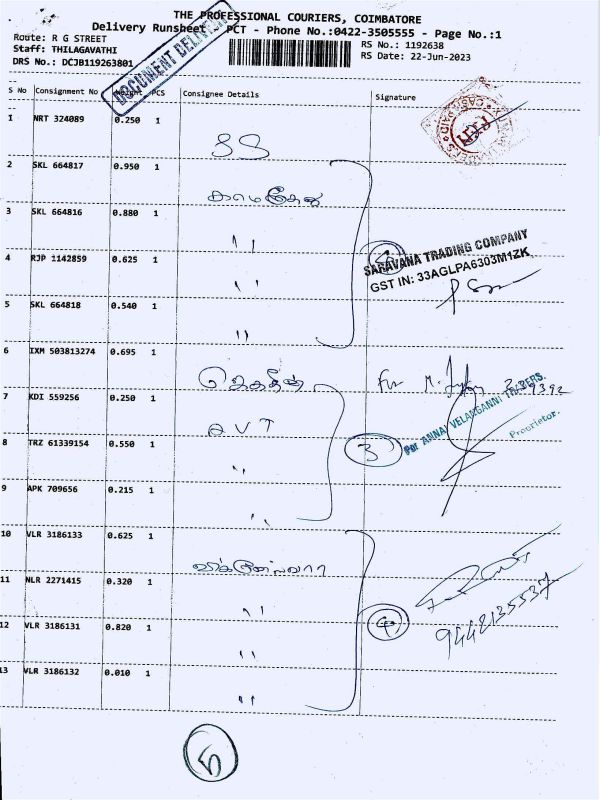 THE PROFESSIONAL COURIERS, COIMBATORE
Delivery Runsheet PCT - Phone No.:0422-3505555 - Page No.:1
Route: R G STREET
Staff: THILAGAVATHI
DRS No.: DCJB119263801
RS No.: 1192638
RS Date: 22-Jun-2023
S No Consignment No PCS Consignee Details Signature
1 NRT 324089 0.250 1
2 SKL 664817 0.950 1
3 SKL 664816 0.880 1 "
4 RJP 1142859 0.625 1 "
SARAVANA TRADING COMPANY
GST IN: 33AGLPA6303M1ZK
5 SKL 664818 0.540 1 "
6 IXM 503813274 0.695 1
For
7 KDI 559256 0.250 1 AVT
For ANNAI VELANGANNI TRADERS.
Proprietor.
8 TRZ 61339154 0.550 1 " 3
9 APK 709656 0.215 1 "
10 VLR 3186133 0.625 1
11 NLR 2271415 0.320 1 "
12 VLR 3186131 0.820 1 " 4
9442135537
13 VLR 3186132 0.010 1 "
5